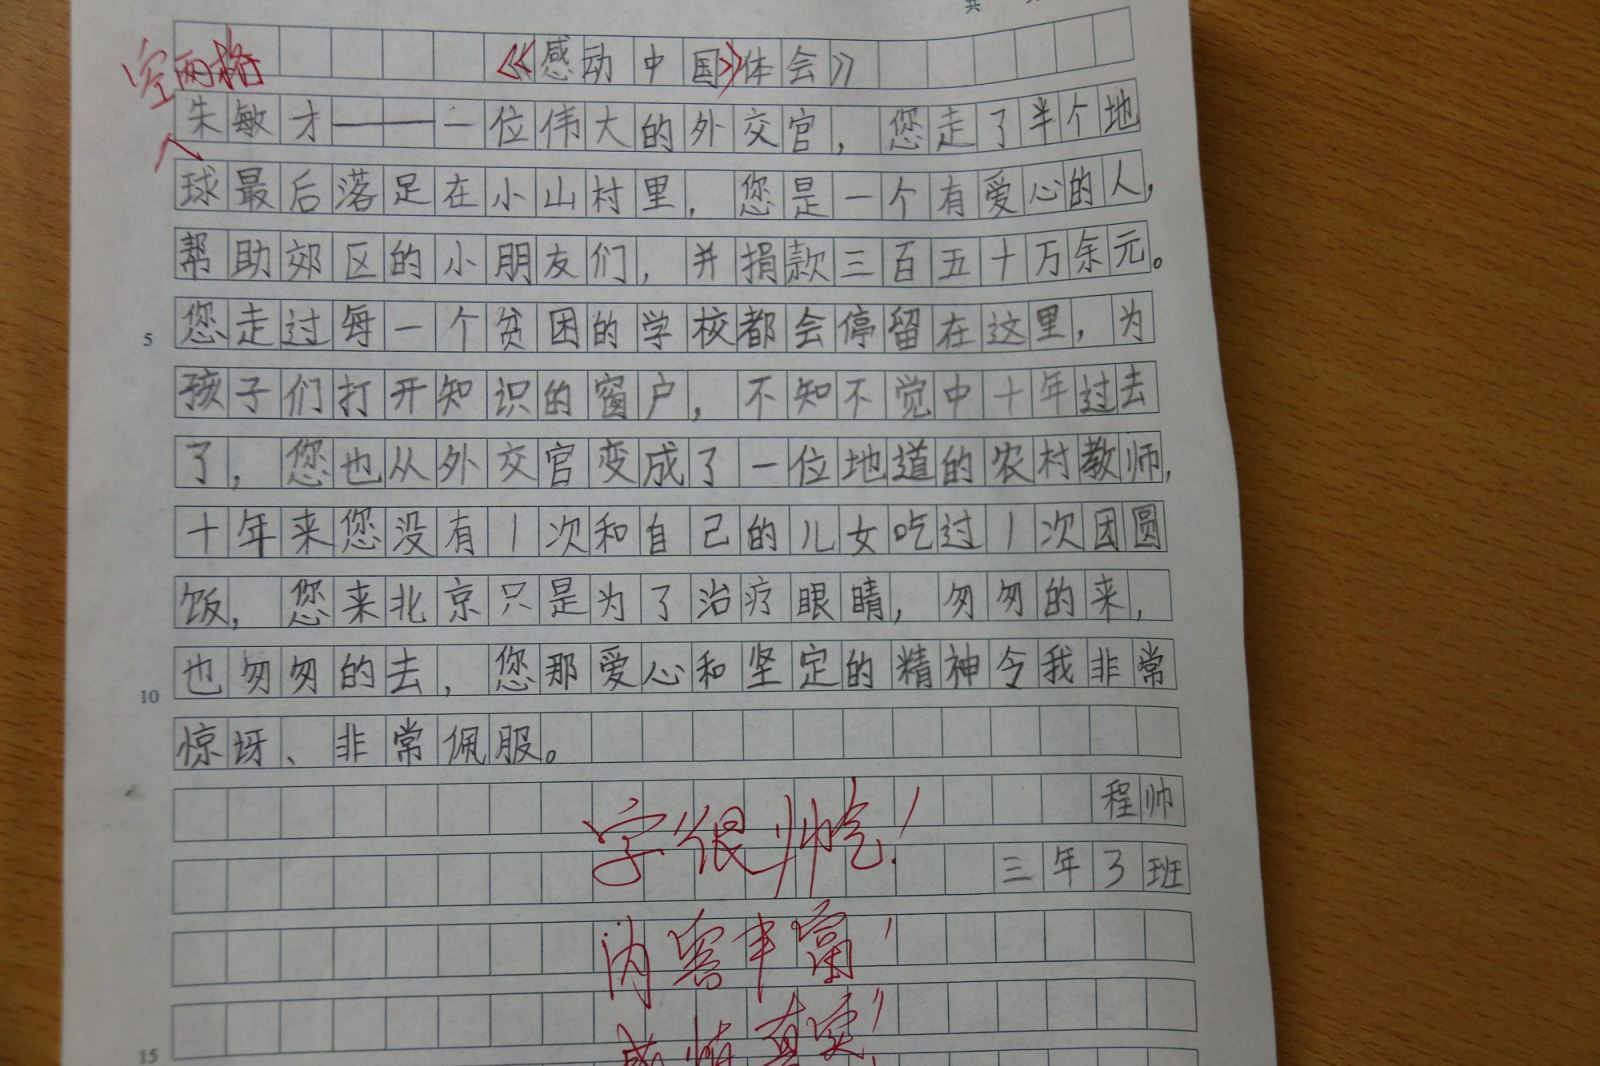 共
《《感动中国》体会》
空两格
朱敏才——一位伟大的外交官，您走了半个地
球最后落足在小山村里，您是一个有爱心的人，
帮助郊区的小朋友们，并捐款三百五十万余元。
5 您走过每一个贫困的学校都会停留在这里，为
孩子们打开知识的窗户，不知不觉中十年过去
了，您也从外交官变成了一位地道的农村教师，
十年来您没有1次和自己的儿女吃过1次团圆
饭，您来北京只是为了治疗眼睛，匆匆的来，
10 也匆匆的去，您那爱心和坚定的精神令我非常
惊讶、非常佩服。
程帅
三年3班
字很帅气！
内容丰富！
15 感情真实！